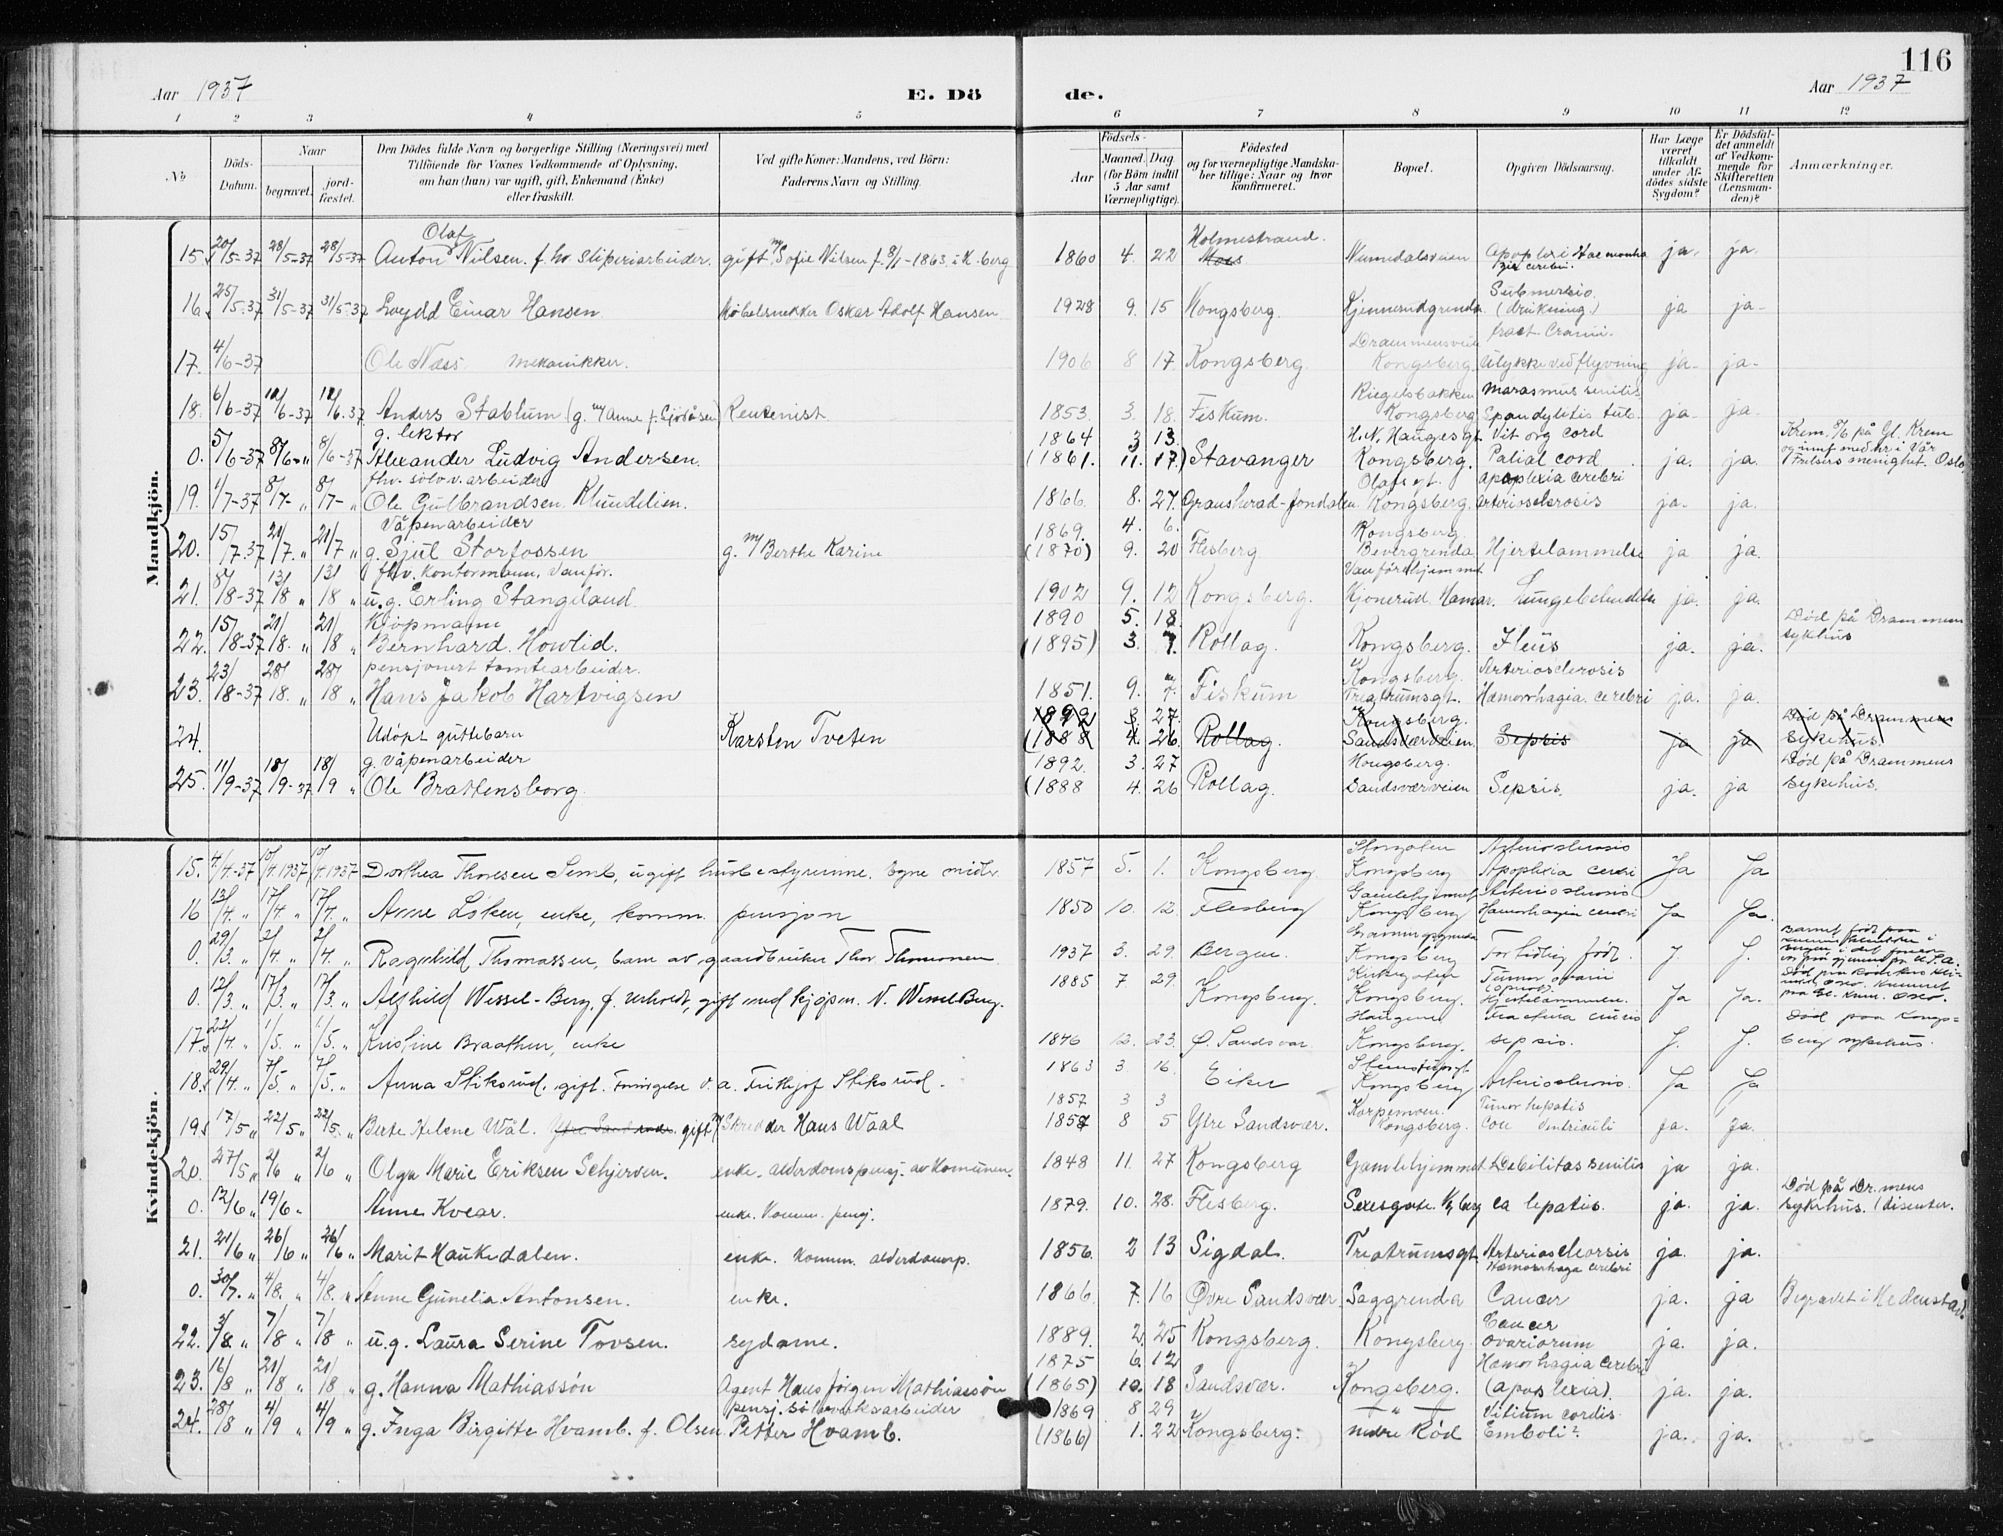 116
Aar 1937
E. Dö de.
Aar 1937
1 2 3 4 5 6 7 8 9 10 11 12
No
Döds-Datum.
Naar
begravet.
jord-fæstet.
Den Dödes fulde Navn og borgerlige Stilling (Næringsvei) med
Tilföiende for Voxnes Vedkommende af Oplysning,
om han (hun) var ugift, gift, Enkemand (Enke)
eller fraskilt.
Ved gifte Koner: Mandens, ved Börn:
Faderens Navn og Stilling.
Födsels-
Aar
Maaned. Dag
(for Börn indtil
5 Aar samt
Værnepligtige).
Födested
og for værnepligtige Mandska-
ber tillige: Naar og hvor
konfirmeret.
Bopæl.
Opgiven Dödsaarsag.
Har Læge
været
tilkaldt
under Af-
dödes sidste
Sygdom?
Er Dödsfal-
det anmeldt
af Vedkom-
mende for
Skifteretten
(Lensman-
den)?
Anmærkninger.
Mandkjön.
15. 20/5-37 28/5-37 28/5-37 Anton Olaf Nilsen. f. hv. sliperiarbeider. gift m/ Sofie Nilsen f. 8/1-1863 i K.berg 1860 4. 22 Holmestrand. Moss Numedalsveien Apoplexi Haemorrha cerebri. ja. ja.
16. 25/5-37 31/5-37 31/5-37 Loydd Einar Hansen Möbelsnekker Oskar Adolf Hansen 1928 9. 15 Kongsberg. Kjennerudgrenda Submersio (drukning.) ja ja-
17. 4/6-37 Ole Næss mekanikker. 1906 8 17. Kongsberg Drammensveien Kongsberg fract Cranii. Ulykke ved flyvning ja- ja-
18. 6/6-37 12/6-37 12/6-37 Anders Stablum (g. m/ Anne f. Gjöåsen) Rentenist 1853 3. 18. Fiskum. Riegelsbakken Kongsberg Marasmus senilis Spondylitis tub. ja- ja-
0. 5/6-37 8/6-" 8/6-37 g. lektor Alexander Ludvig Andersen. 1864 3 13. (1861. 11. 17.) Stavanger H.N. Haugesgt. Kongsberg. Vit org cord Palial cord ja. ja. Krem. 8/6 på Gl. Krem
19. 1/7-37 8/7- " 8/7- " fhv. sölvv.arbeider Ole Gulbrandsen Klundelien. 1866 8. 27. Gransherad-Jondalen Olafs gt. Kongsberg. Apoplexia cerebri Arteriosclerosis ja. ja.
20. 15/7-37 21/7. " 21/7 " Våpenarbeider g. Sjul Storfossen g. m/ Berthe Karine 1869. 4. 6. (1870) 9. 20 Flesberg Kongsberg. Bevergrenda Hjertelammelse ja ja.
21. 8/8-37 13/8 " 13/8 " fhv. kontormann, vanför. u.g. Erling Stangeland. 1902 9. 12 Kongsberg. Vanförehjemmet Kjonerud Hamar. Lungebetendelse ja. ja.
22. 15/8-37 21/8. " 21/8 " Kjöpmann Bernhard Howlid. 1890 5. 18. (1895) 3. 7. Rollag. Kongsberg. Ileus ja. ja. Död på Drammen sykhus
23. 23/8-37 28/8. " 28/8 " pensjonert tomtearbeider. Hans Jakob Hartvigsen 1851. 9. 7. Fiskum Kongsberg. Teatrumsgt. Arteriosclerosis Hæmorrhagia cerebri ja. ja.
24. Udöpt guttebarn Karsten Tveten 1892 3. 27. (1888 4. 26. Rollag. Kongsberg. Sandsværveien. Sepsis ja ja Död på Drammens Sykehus.
25. 11/9-37 18/9-37 18/9 " g. våpenarbeider Ole Brattensborg 1892. 3. 27 (1888 4. 26 Rollag. Kongsberg. Sandsværveien Sepsis. ja. ja Död på Drammens Sykehus.
Kvindekjön.
15. 4/4-37 10/4 1937 10/4 1937 Dorthea Thoresen Semb, ugift husbestyrerinne. Egne midler 1857 5. 1. Kongsberg. Storgaten Kongsberg Arteriosclerosis Apoplexia cerebri Ja Ja
16 13/4. " 17/4 " 17/4. " Anne Loken, enke, komm. pensjon 1850 10. 12. Flesberg Gamlehjemmet Kongsberg Arteriosclerosis Hæmorhagia cerebri Ja Ja.
0. 29/3. " 2/4 " 2/4. " Ragnhild Thomassen, barn av gaardbruker Thor Thomassen 1937 3. 29. Bergen. Kongsberg For tidlig födt. J. J. Barnet födt paa
0. 12/3. " 17/3. " 17/3. " Alfhild Wessel-Berg, f. , gift med kjöpm. N. Wessel Berg. 1885 7. 29. Kongsberg. Kirkegaten Kongsberg. Tumor ovarii (operert). Hjertelammelse. Ja Ja.
17. 22/4. " 1/5. " 1/5. " Kristine Braathen, enke 1846 12. 23. Ö. Sandsvær. Haugene Kongsberg. Fractura cruris sepsis. J. J. Död paa Kongsberg sykehus.
18. 29/4. " 7/5 " 7/5. " Anna Stiksrud. gift. Forsörgelse v. a. Frithjof Stiksrud. 1863 3 16. Eiker Kongsberg Arteriosclerosis. Ja Ja
19. 17/5 " 22/5 " 22/5. " Berte Helene Wål. gift m/ Skredder Hans Waal 1857 3 3 1857 8 5 Ytre Sandsvær. Korpemoen. Kongsberg. Tumor hepatis Coli Ventriculi ja. ja.
20. 27/5 " 2/6 " 2/6 " Olga Marie Eriksen Schjerven. enke. alderdomspensj. av Komunen. 1848 11. 27 Kongsberg Gamlehjemmet Debilitas senilis ja ja.
0. 12/6 " 19/6 " Anne Kvear. enke. Komm. pensj. 1879. 10. 28. Flesberg. Sexesgate. K/berg ca lepatis. ja. ja. Död på Dr.mens sykehus. (disenter.
21. 21/6 " 26/6 " 26/6 " Marit Haukedalen. enke. komm. alderdomsp. 1856. 2 13 Sigdal. Teatrumsgt. Arteriosclerosis Hæmorrhaga cerebri ja. ja.
0. 30/7. " 4/8. " 4/8. " Anne Gunelia Antonsen. enke. 1866 7. 16 Övre Sandsvær Saggrenda Cancer ja. ja Begravet i Hedenstad.
22. 3/8. " 7/8 " 7/8 " u.g. Laura Serine Tovsen. sydame. 1889. 2. 25 Kongsberg. Kongsberg. Cancer ovariorum ja. ja.
23. 16/8 " 21/8 " 21/8 " g. Hanna Mathiassön Agent Hans Jörgen Mathiassön 1875 6. 12 (1865) 10. 18 Sandsvær. Kongsberg. Hæmorhagia Cerebri (apoplexia). ja. ja.
24. 28/8 " 4/9 " 4/9 " g. Inga Birgitte Hvamb. f. Olsen pensj. sölvverksarbeider Petter Hvamb. 1869 8 29 (1866) 1. 22 Kongsberg. — " — nedre Kød Vitium cordis. Emboli? ja. ja.